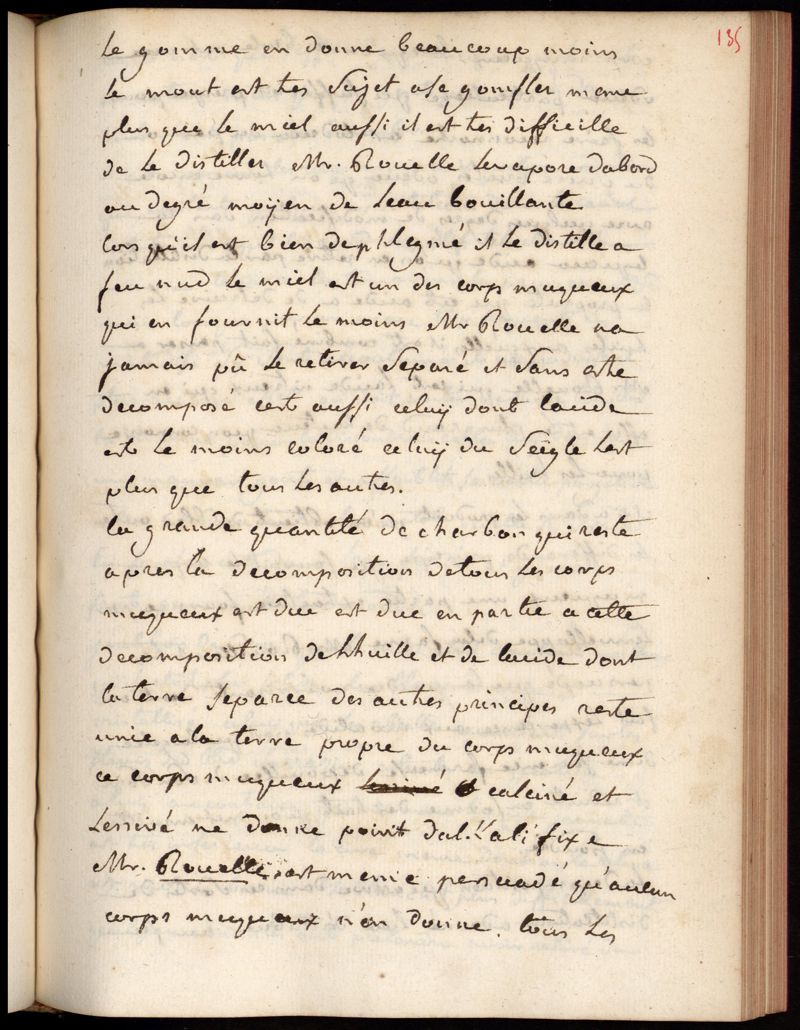 135
le gomme en donne beaucoup moins
le mout est tres sujet a se gonfler meme
plus que le miel aussi il est tres difficille
de le distiller Mr. Rouelle levapore dabord
au degré moÿen de leau bouillante
lors qu'il est bien dephlegmé il le distille a
feu nud le miel est un des corps muqueux
qui en fournit le moins Mr Rouelle na
jamais pû le retirer separé et sans etre
decomposé cest aussi celuÿ dont lacide
est le moins coloré celuÿ du seigle lest
plus que tous les autres.
la grande quantité de charbon qui reste
apres la decomposition de tous les corps
muqueux est due est due en partie a cette
decomposition de lhuille et de lacide dont
la terre separee des autres principes reste
unie a la terre propre du corps muqueux
ce corps muqueux calciné et
lessivé ne donne point dalkali fixe
Mr. Rouelle est meme persuadé qu'aucun
corps muqueux n'en donne. tous les